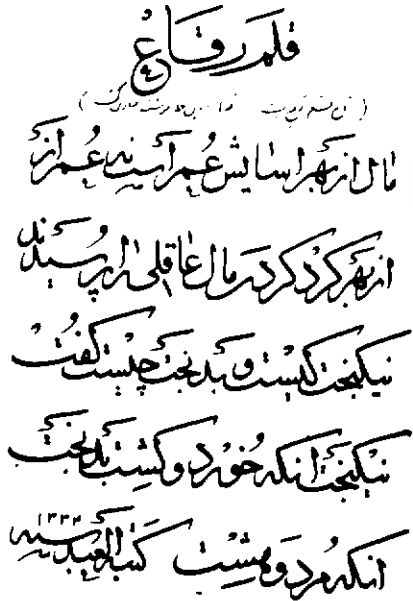 قلم رقاع
مال از بهر آسایش عمر است نه عمر از
از بهر گرد کردن مال عاقلی را پرسیدند
نیکبخت کیست و بدبخت چیست گفت
نیکبخت آنکه خورد و کشت بدبخت
آنکه مرد و هشت کتبه العبد ۱۳۴۴